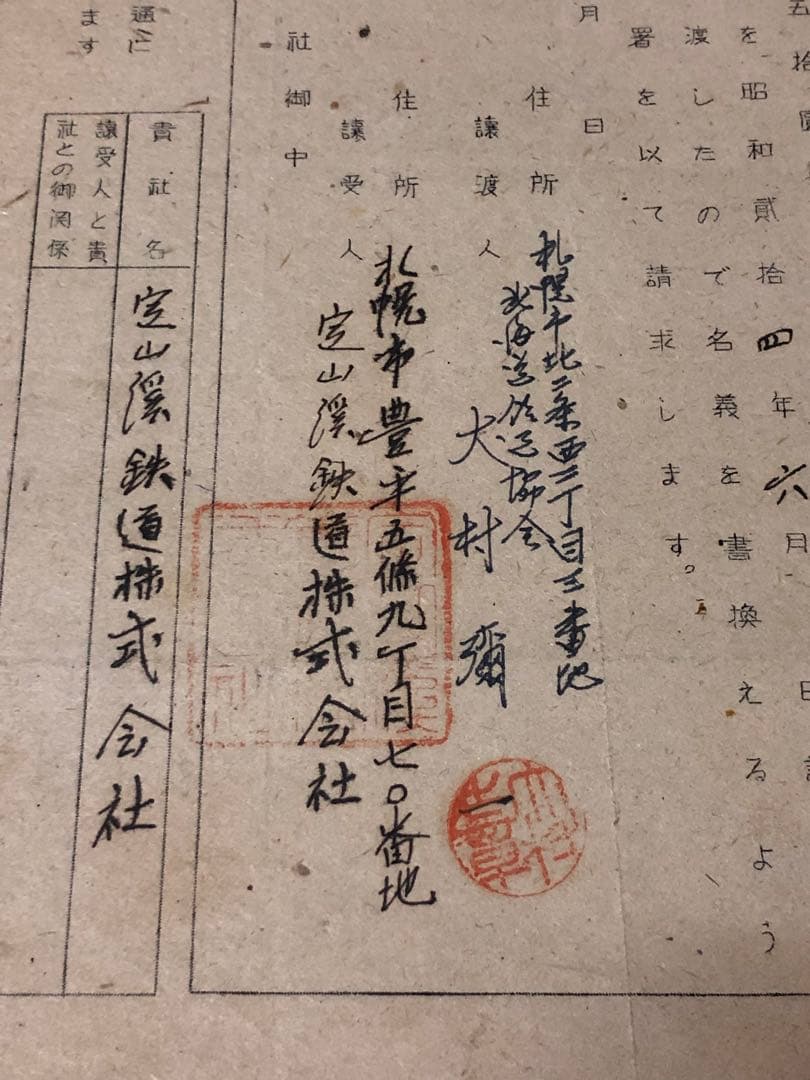 五拾圓
を昭和貳拾四年六月 日
渡したので名義を書換えるよう
署を以て請求します。
月 日
住所 札幌市北二条西二丁目三番地
北海道
協会
譲渡人 犬村彌一
住所 札幌市豊平五條九丁目七〇番地
譲受人 定山溪鉄道株式会社
社御中
貴社名 定山溪鉄道株式会社
譲受人と貴
社との御関係
通に
ます